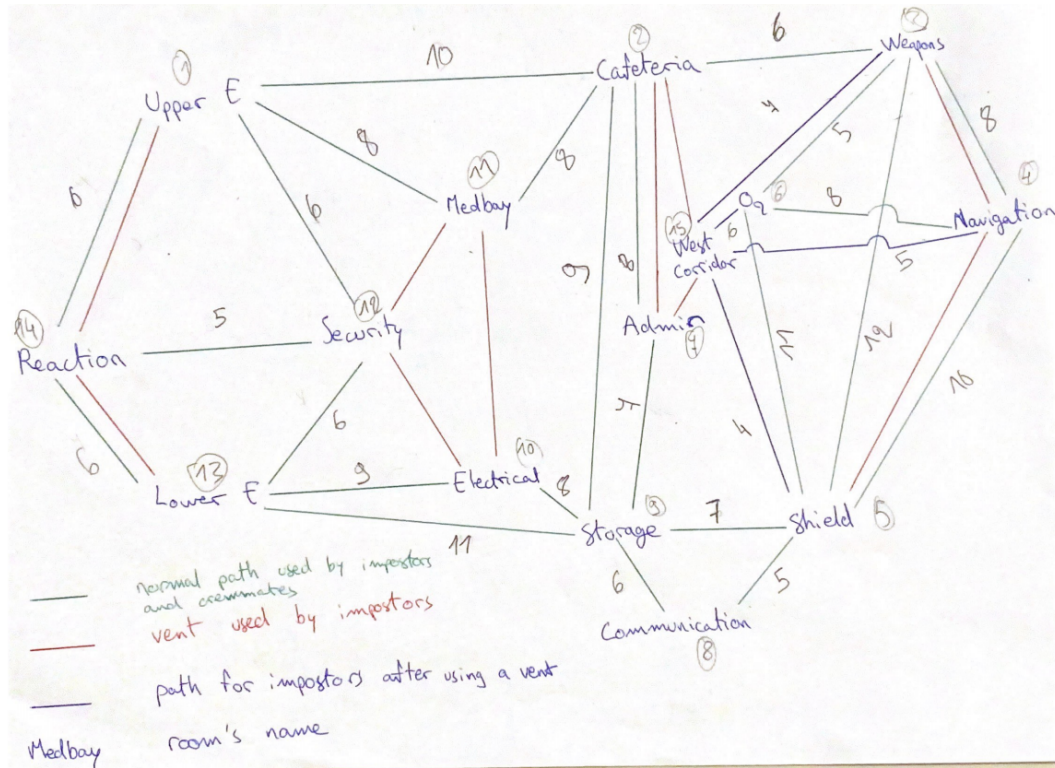 1
Upper E
10
2
Cafeteria
6
Weapons
6
8
11
Medbay
8
6
5
8
4
Navigation
O2
6
8
15
West
corridor
6
5
9
8
Admin
14
Reaction
5
12
Security
6
4
10
6
13
Lower E
9
10
Electrical
8
Storage
7
Shield
5
11
6
5
Communication
8
normal path used by impostors
and crewmates
vent used by impostors
path for impostors after using a vent
Medbay
room's name